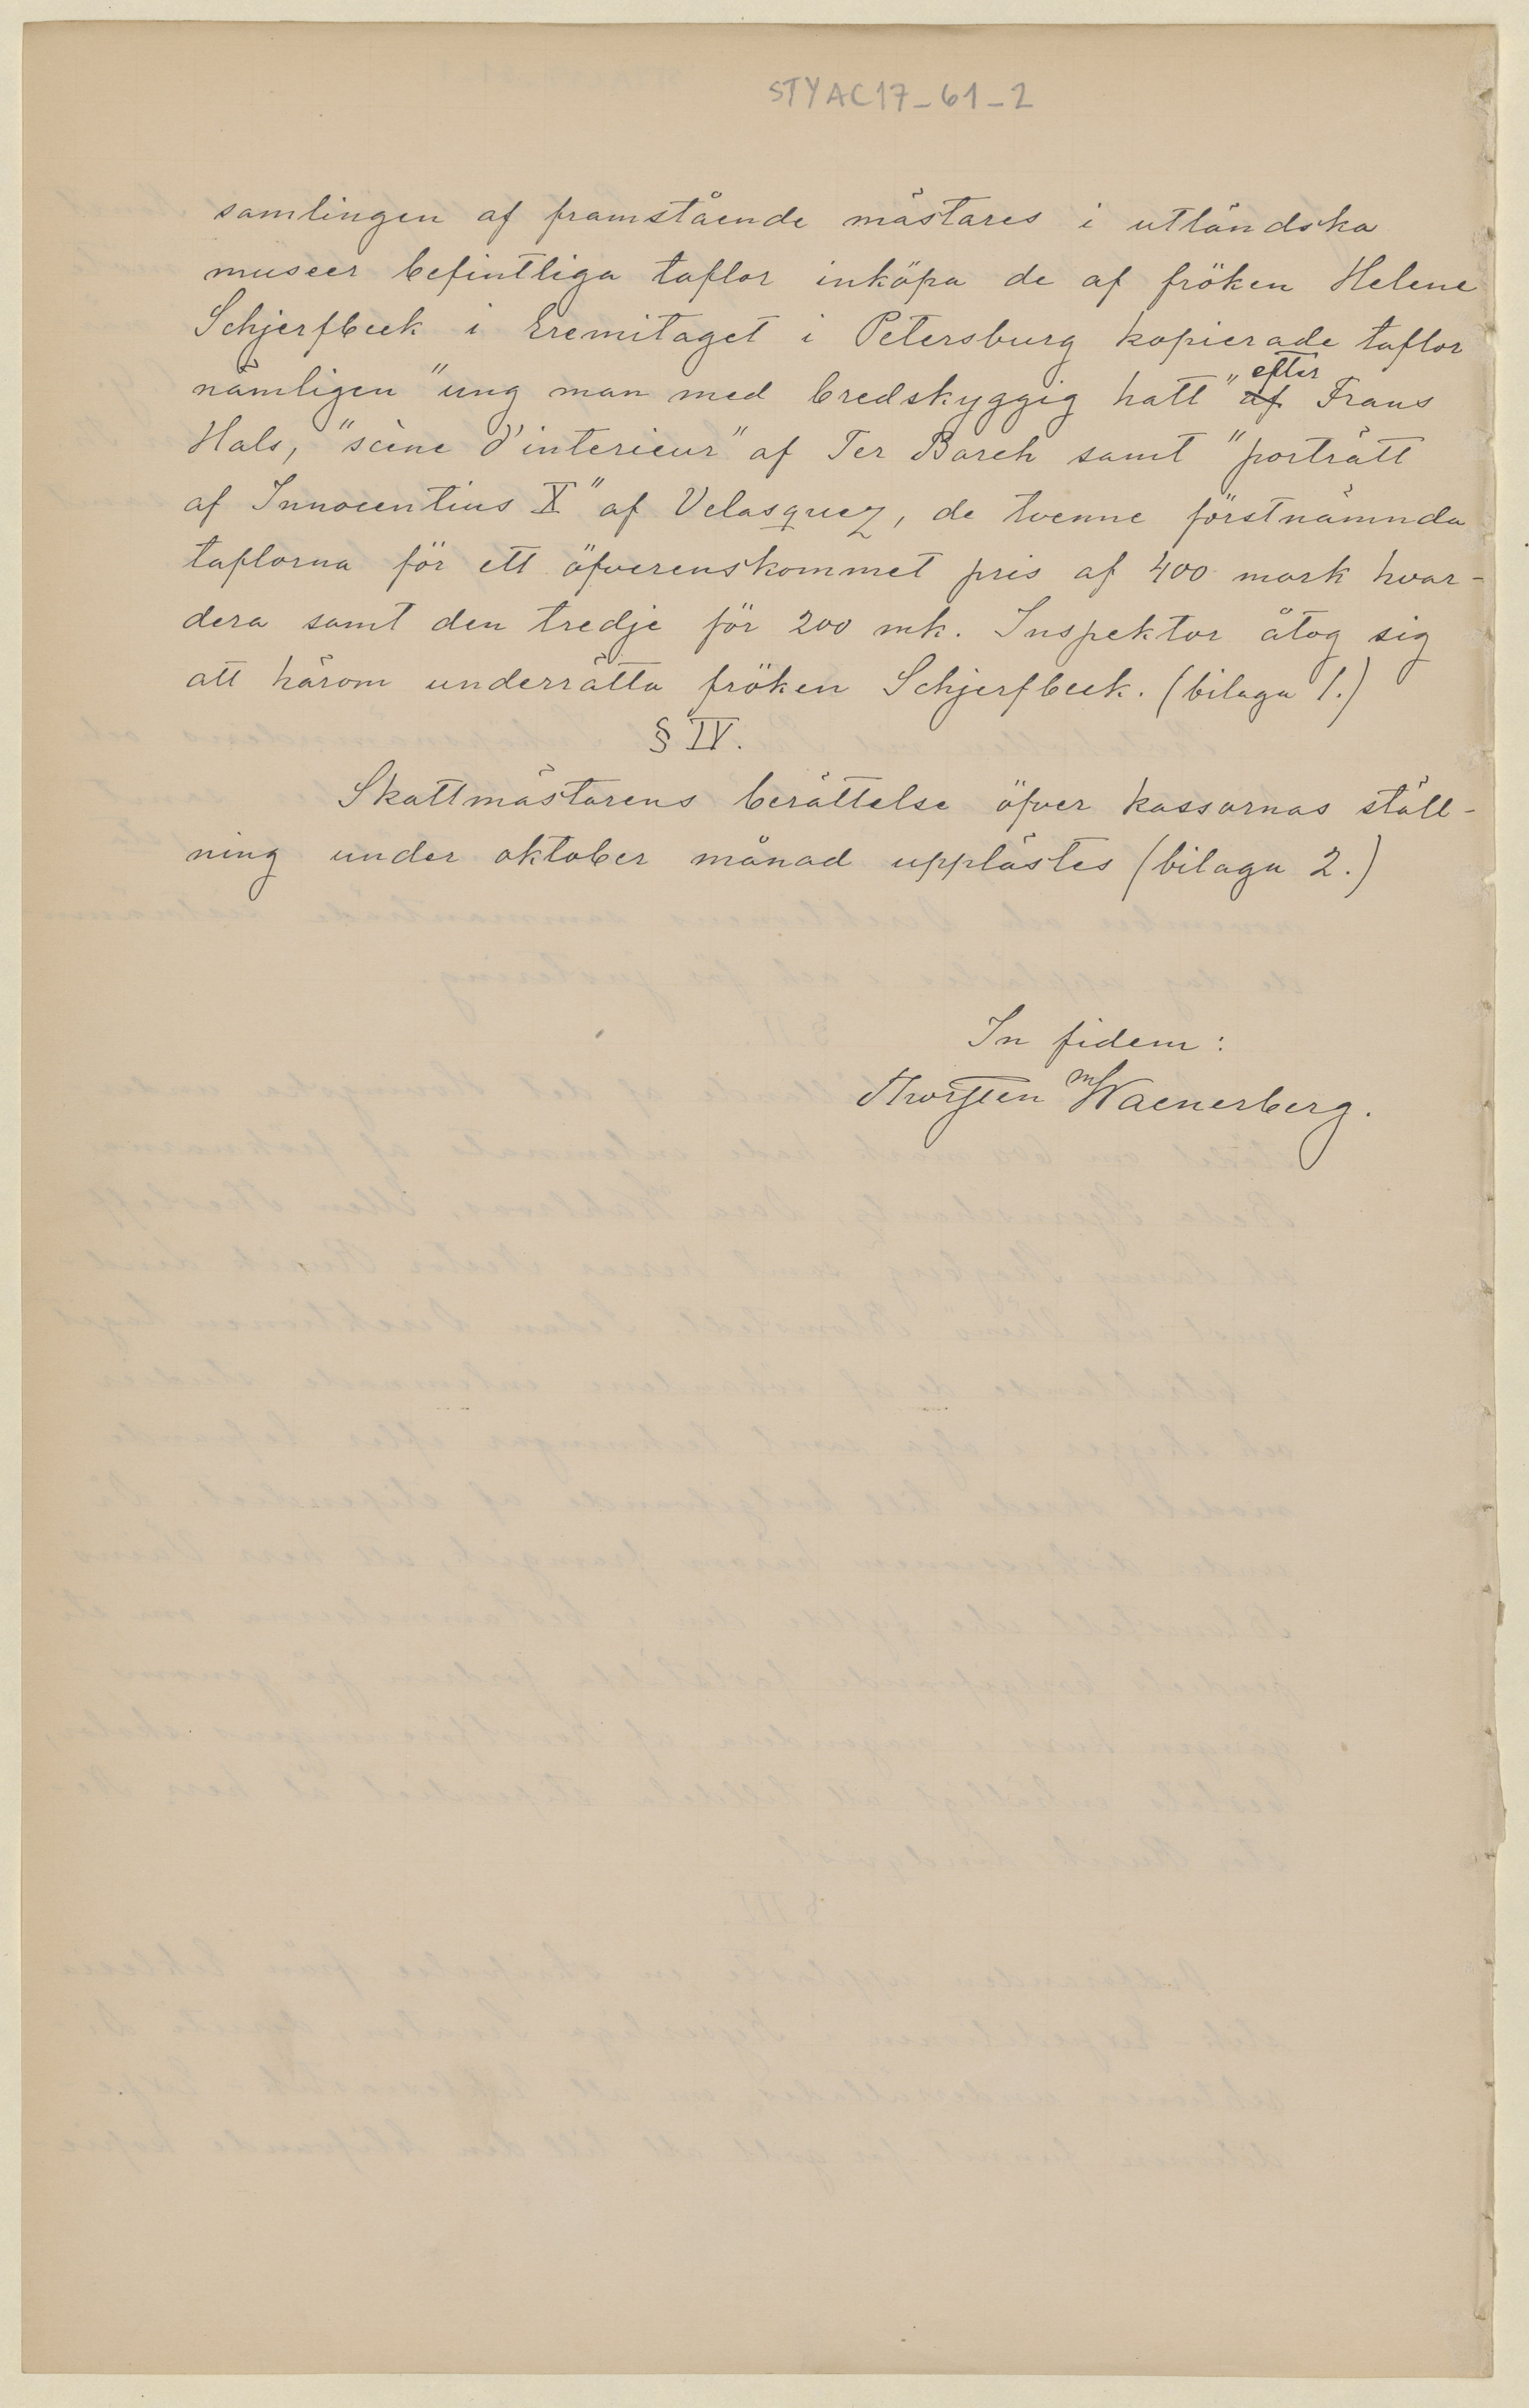 STYAC17_61_2
samlingen af framstående mästares i utländska
museer befintliga taflor inköpa de af fröken Helene
Schjerfbeck i Eremitaget i Petersburg kopierade taflor
nämligen "ung man med bredskyggig hatt" ~~af~~ efter Frans
Hals, "scène d'interieur" af Ter Borch samt "porträtt
af Innocentius X" af Velasquez, de tvenne förstnämnda
taflorna för ett öfverenskommet pris af 400 mark hvar-
dera samt den tredje för 200 mk. Inspektor åtog sig
att härom underrätta fröken Schjerfbeck. (bilaga 1.)
§ IV.
Skattmästarens berättelse öfver kassornas ställ-
ning under oktober månad upplästes (bilaga 2.)
In fidem:
Thorsten Waenerberg.